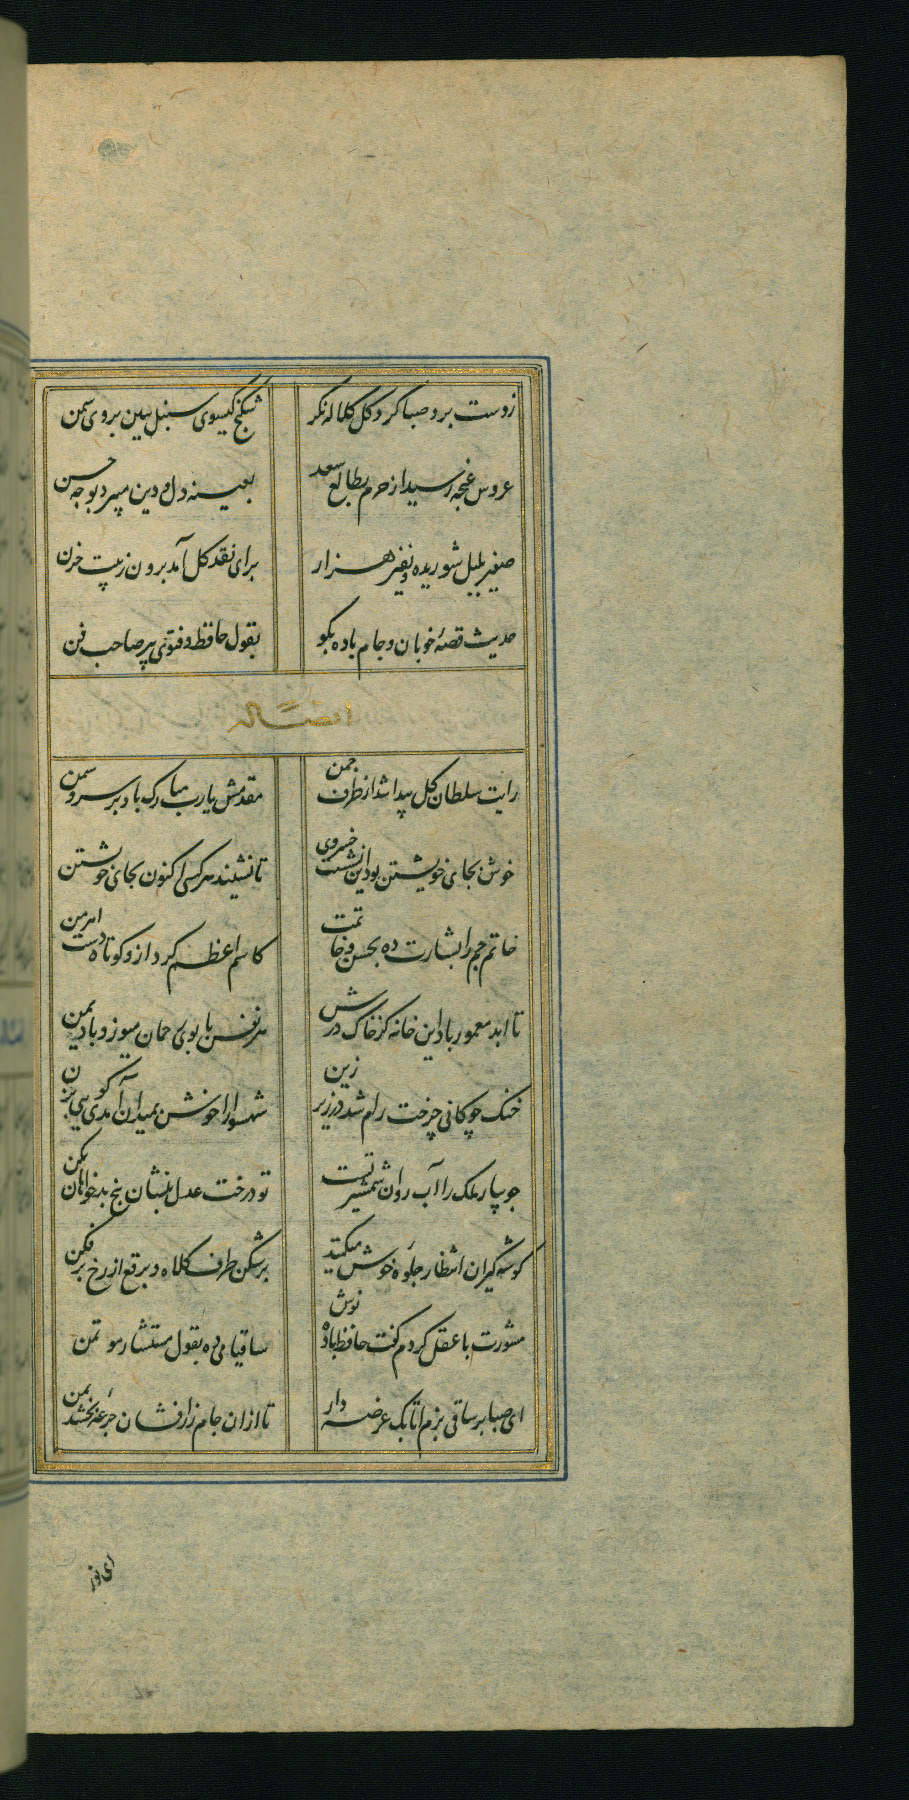 زدست برد صبا کرد کل کلاله نکر
شکنج کیسوی سنبل ببین بروی سمن
عروس غنچه رسید از حرم بطالع سعد
بعینه دل و دین میبرد بوجه حسن
صفیر بلبل شوریده و نفیر هزار
برای نقد کل آمد برون ز بیت حزن
حدیث قصهٔ خوبان و جام باده بکو
بقول حافظ و فتوی پیر صاحب فن
ایضاً له
رایت سلطان کل پیدا شد از طرف چمن
مقدمش یارب مبارک باد بر سرو و سمن
خوش بجای خویشتن بود این نشست خسروی
تا نشیند هر کسی اکنون بجای خویشتن
خاتم جم را بشارت ده بحسن خاتمت
کاسم اعظم کرد ازو کوتاه دست اهرمن
تا ابد معمور باد این خانه کز خاک درش
هر نفس با بوی رحمان میوزد باد یمن
خنک چوکانی چرخت رام شد در زیر زین
شهسوارا خوش بمیدان آمدی کویی بزن
جویبار ملک را آب روان شمشیر تست
تو درخت عدل بنشان بیخ بدخواهان بکن
کوشه کیران انتظار جلوه خوش میکنند
برشکن طرف کلاه و برقع از رخ برفکن
مشورت با عقل کردم کفت حافظ باده نوش
ساقیا می ده بقول مستشار موتمن
ای صبا بر ساقی بزم اتابک عرضه دار
تا ازان جام زرافشان جرعهٔ بخشد بمن
ای نور